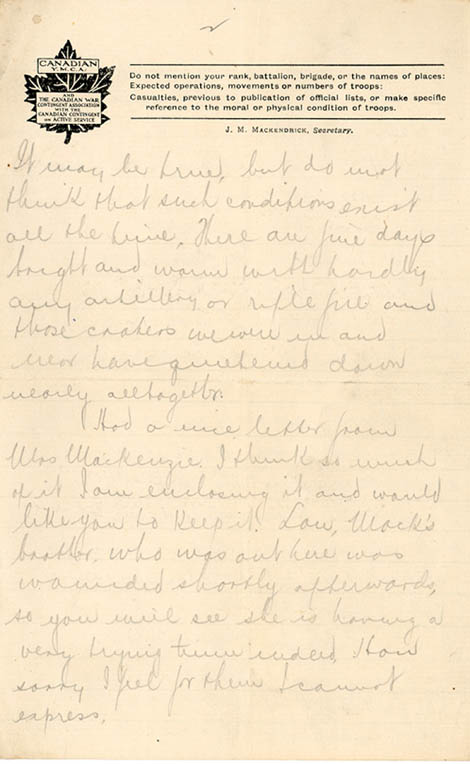 2
CANADIAN
Y.M.C.A.
AND
THE CANADIAN WAR
CONTINGENT ASSOCIATION
WITH THE
CANADIAN CONTINGENT
ON ACTIVE SERVICE
Do not mention your rank, battalion, brigade, or the names of places:
Expected operations, movements or numbers of troops:
Casualties, previous to publication of official lists, or make specific
reference to the moral or physical condition of troops.
J. M. MACKENDRICK, Secretary.
It may be true, but do not
think that such conditions exist
all the time. There are fine days
bright and warm with hardly
any artillery or rifle fire and
those craters we were in and
near have quietened down
nearly alltogether.
Had a nice letter from
Mrs Mackenzie. I think so much
of it I am enclosing it and would
like you to keep it. Lou, Mack's
brother, who was out here was
wounded shortly afterwards,
so you will see she is having a
very trying time indeed. How
sorry I feel for them I cannot
express.